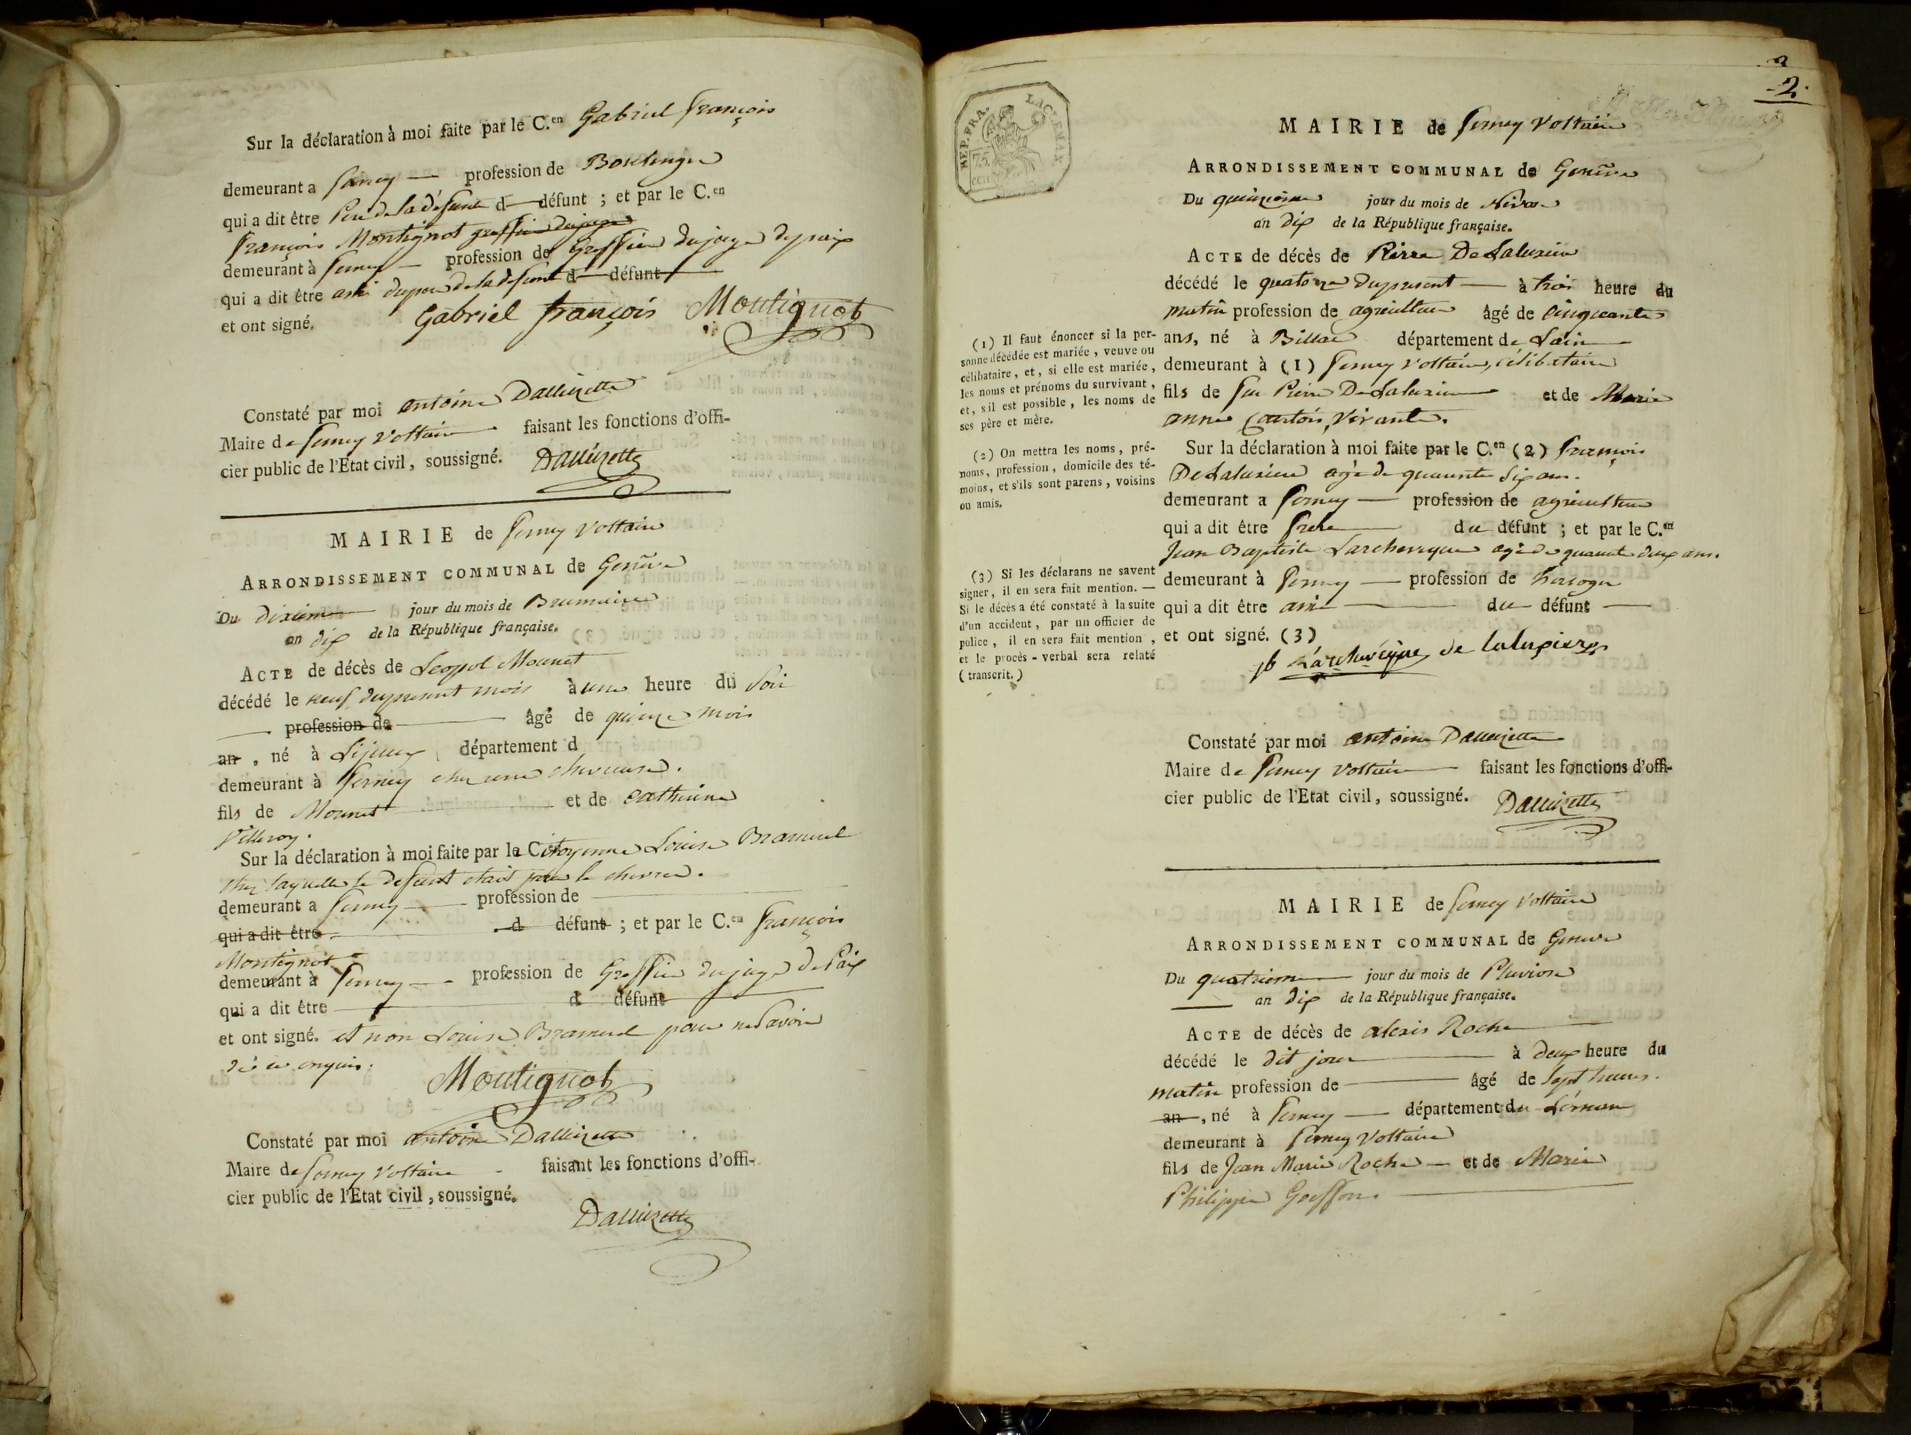 Sur la déclaration à moi faite par le C.en Gabriel françois
demeurant a ferney profession de Boulenger
qui a dit être Pere de la défunte d défunt ; et par le C.en
François Montignot greffier du juge
demeurant à ferney profession de Greffier du juge de paix
qui a dit être ami du pere de la défunte d défunt
et ont signé.
Gabriel françois Montignot
Constaté par moi antoine Dallizette
Maire de ferney voltaire faisant les fonctions d'offi-
cier public de l'État civil, soussigné. Dallizette
MAIRIE de ferney Voltaire
ARRONDISSEMENT COMMUNAL de Genêve
Du dixieme jour du mois de Brumaire
an dix de la République française.
ACTE de décès de Leopol Mounet
décédé le neuf du present mois à une heure du Soir
profession de âgé de quinze mois
an, né à département d
demeurant à ferney chez une
fils de Mounet et de Catherine
Villeroy.
Sur la déclaration à moi faite par le Citoyenne Louise Bramerel
chez laquelle le defunt etait
demeurant a ferney profession de
qui a dit être d défunt ; et par le C.en françois
Montignot
demeurant à ferney profession de Greffier du juge de Paix
qui a dit être d défunt
et ont signé. et non Louise Bramerel pour ne Savoir
de ce enquis.
Montignot
Constaté par moi antoine Dallizette
Maire de ferney Voltaire faisant les fonctions d'offi-
cier public de l'Etat civil, soussigné.
Dallizette
2
2.
REP. FRA.
75
CEN
MAIRIE de ferney Voltaire
ARRONDISSEMENT COMMUNAL de Genêve
Du quinzieme jour du mois de Nivose
an dix de la République française.
ACTE de décès de Pierre DeLaluxiere
décédé le quatorze du present à trois heure du
matin profession de agriculteur âgé de Cinquante
ans, né à Billac département de Lain
demeurant à (1) ferney voltaire, célibataire
fils de feu Pierre DeLaluxiere et de Marie
anne Courtois, Vivante.
Sur la déclaration à moi faite par le C.en (2) françois
DeLaluxiere agé de quarante Six ans.
demeurant a ferney profession de agriculteur
qui a dit être frere du défunt ; et par le C.en
Jean Baptiste Larchevêque agé de quarante deux ans.
demeurant à ferney profession de horloger
qui a dit être ami du défunt
et ont signé. (3)
jb Larchevêque de laluxiere
Constaté par moi antoine Dallizette
Maire de ferney Voltaire faisant les fonctions d'offi-
cier public de l'Etat civil, soussigné. Dallizette
(1) Il faut énoncer si la per-
sonne décédée est mariée, veuve ou
célibataire, et, si elle est mariée,
les noms et prénoms du survivant,
et, s'il est possible, les noms de
ses père et mère.
(2) On mettra les noms, pré-
noms, profession, domicile des té-
moins, et s'ils sont parens, voisins
ou amis.
(3) Si les déclarans ne savent
signer, il en sera fait mention. —
Si le décès a été constaté à la suite
d'un accident, par un officier de
police, il en sera fait mention,
et le procès-verbal sera relaté
(transcrit.)
MAIRIE de ferney Voltaire
ARRONDISSEMENT COMMUNAL de Geneve
Du quatrieme jour du mois de Pluviose
an dix de la République française.
ACTE de décès de alexis Roche
décédé le dit jour à deux heure du
matin profession de âgé de Sept heures.
an, né à ferney département du Léman
demeurant à ferney Voltaire
fils de Jean Marie Roche et de Marie
Philippine Goeffon.